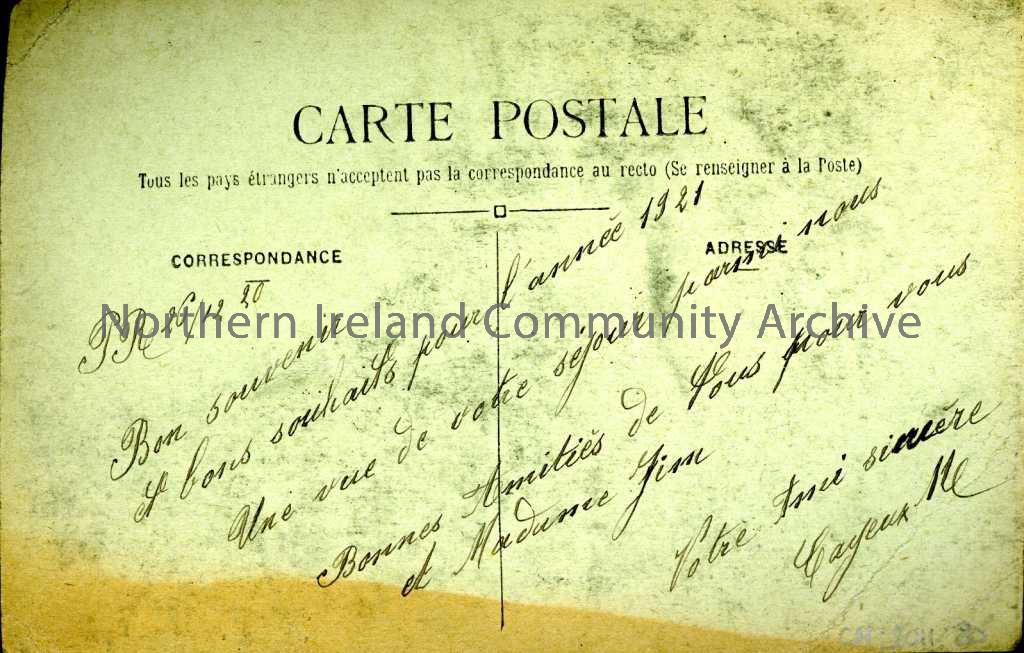 CARTE POSTALE
Tous les pays étrangers n'acceptent pas la correspondance au recto (Se renseigner à la Poste)
CORRESPONDANCE
ADRESSE
PR 26/12 20
Bon souvenir
et bons souhaits pour l'année 1921
Une vue de votre séjour parmi nous
Bonnes Amitiés de tous pour vous
et Madame Jim
Votre Ami sincère
Cayeux
Northern Ireland Community Archive